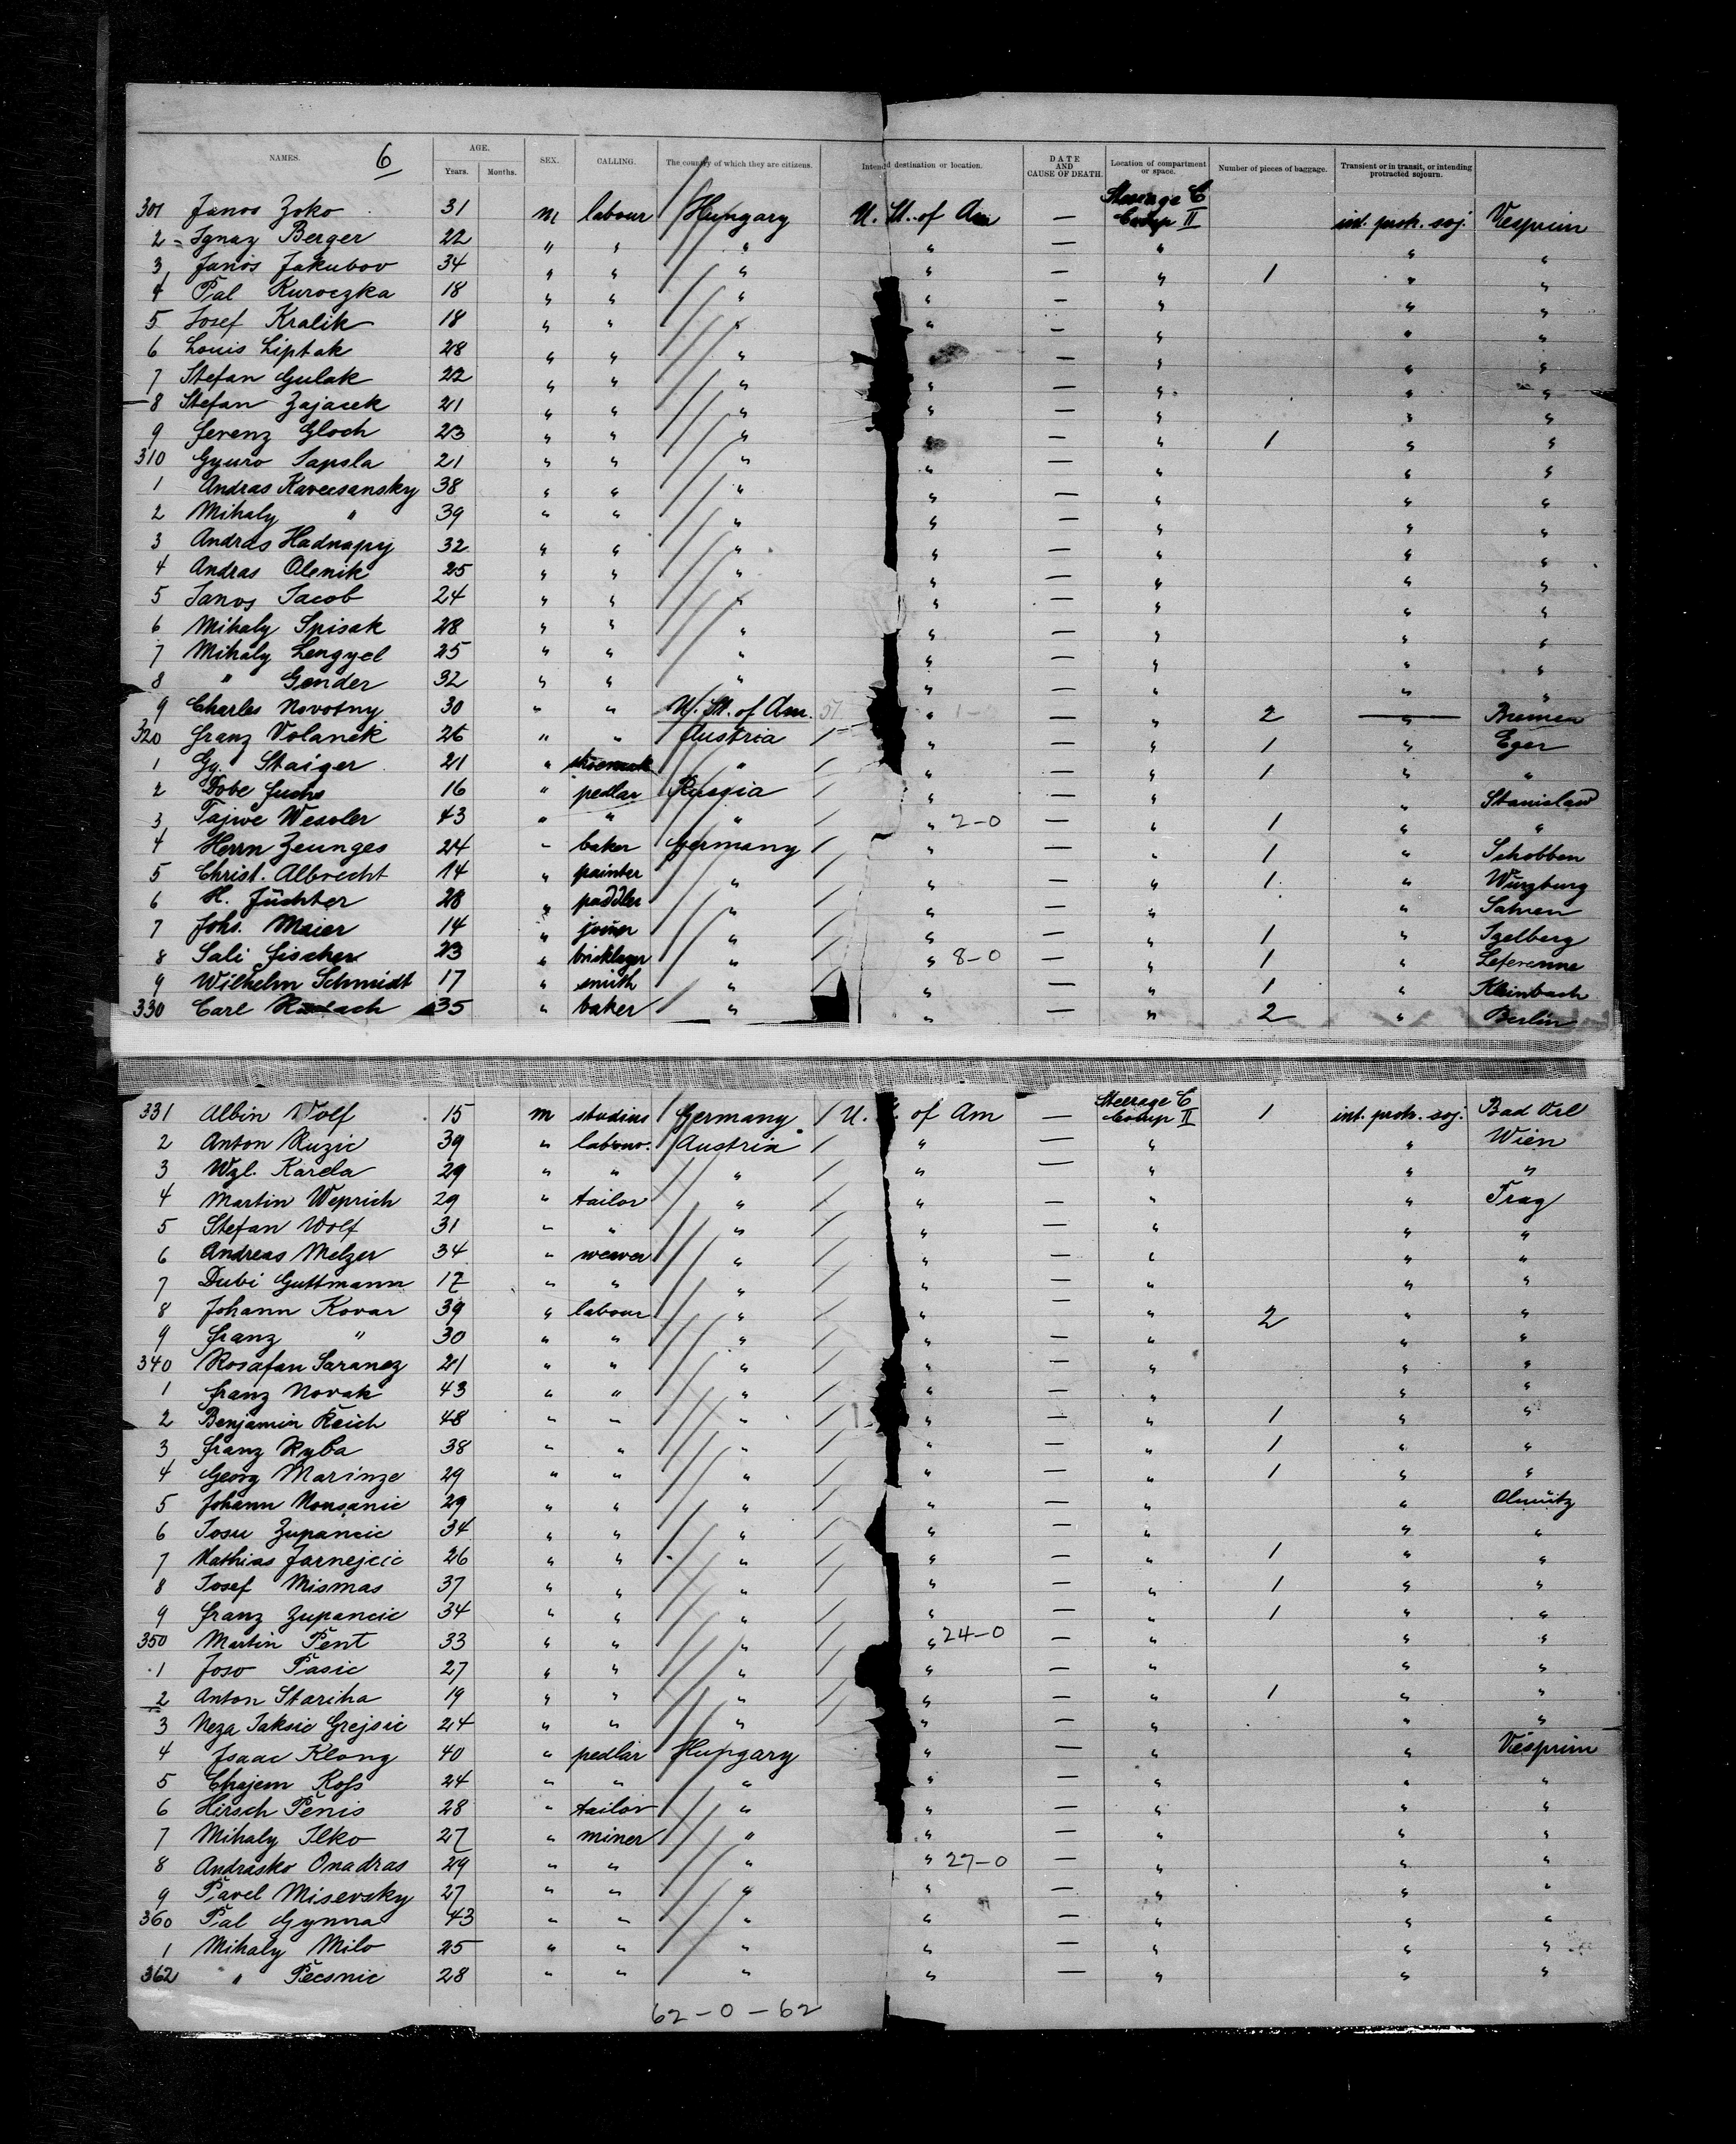 NAMES. 6 AGE. Years. Months. SEX. CALLING. The country of which they are citizens. Intended destination or location. DATE AND CAUSE OF DEATH. Location of compartment or space. Number of pieces of baggage. Transient or in transit, or intending protracted sojourn.
301 Janos Zoko 31 m labour Hungary U. St. of Am — Steerage C Comp II int. protr. soj. Vesprim
2 Ignaz Berger 22 " " " " — " " "
3 Janos Jakubov 34 " " " " — " 1 " "
4 Pal Kuroczka 18 " " " " — " " "
5 Josef Kralik 18 " " " " — " " "
6 Louis Liptak 28 " " " — " " "
7 Stefan Gulak 22 " " " " — " " "
8 Stefan Zajacek 21 " " " " — " " "
9 Ferenz Gloch 23 " " " — " 1 " "
310 Gyuro Sapsla 21 " " " " — " " "
1 Andras Kavecsansky 38 " " " " — " " "
2 Mihaly " 39 " " " " — " " "
3 Andras Hadnapy 32 " " " " — " " "
4 Andras Olenik 25 " " " " — " " "
5 Janos Jacob 24 " " " " — " " "
6 Mihaly Spisak 28 " " " " — " " "
7 Mihaly Lengyel 25 " " " " — " " "
8 " Gender 32 " " " " — " " "
9 Charles Novotny 30 " " U. St. of Am. " — " 2 " Bremen
320 Franz Volanek 26 " " Austria " — " 1 " Eger
1 Gg. Staiger 21 " " " — " 1 " "
2 Fuchs 16 " pedlar Russia " — " " Stanislaw
3 Tajwe Wessler 43 " " " " 2-0 — " 1 " "
4 Herrn Zeunges 24 " baker Germany " — " 1 " Schobben
5 Christ. Albrecht 14 " painter " " — " 1 " Würzburg
6 H. Füchter 28 " paddler " " — " "
7 Johs. Maier 14 " joiner " " — " 1 " Igelberg
8 Sali Fischer 23 " bricklayer " " 8-0 — " 1 "
9 Wilhelm Schmidt 17 " smith " " — " 1 " Kleinbach
330 Carl 35 " baker " " — " 2 " Berlin
331 Albin Wolf 15 m studius Germany U. of Am — Steerage C Comp II 1 int. protr. soj. Bad Orl
2 Anton Ruzic 39 " labour. Austria " — " " Wien
3 Wzl. Karela 29 " " " " — " " "
4 Martin Weprich 29 " tailor " " — " " Prag
5 Stefan Wolf 31 " " " " — " " "
6 Andreas Melzer 34 " weaver " " — " " "
7 Dubi Guttmann 17 " " " " — " " "
8 Johann Kovar 39 " labour " " — " 2 " "
9 Franz " 30 " " " " — " " "
340 Rosafan Saranez 21 " " " " — " " "
1 Franz Novak 43 " " " " — " " "
2 Benjamin Reich 48 " " " " — " 1 " "
3 Franz Ryba 38 " " " " — " 1 " "
4 Georg Marinze 29 " " " " — " 1 " "
5 Johann Nousanic 29 " " " " — " " Olmütz
6 Josu Zupancic 34 " " " " — " " "
7 Mathias Jarnejcic 26 " " " " — " 1 " "
8 Josef Mismas 37 " " " " — " 1 " "
9 Franz Zupancic 34 " " " " — " 1 " "
350 Martin Pent 33 " " " " 24-0 — " " "
1 Joso Pasic 27 " " " " — " " "
2 Anton Stariha 19 " " " " — " 1 " "
3 Neza Jaksic Grejsic 24 " " " " — " " "
4 Isaac Klong 40 " pedlar Hungary " — " " Vesprim
5 Chajem Ross 24 " " " " — " " "
6 Hirsch Penis 28 " tailor " " — " " "
7 Mihaly Ilko 27 " miner " " — " " "
8 Andrasko Onadras 29 " " " " 27-0 — " " "
9 Pavel Misevsky 27 " " " " — " " "
360 Pal Gynna 43 " " " " — " " "
1 Mihaly Milo 25 " " " " — " " "
362 " Pecsnic 28 " " " " — " " "
62-0-62